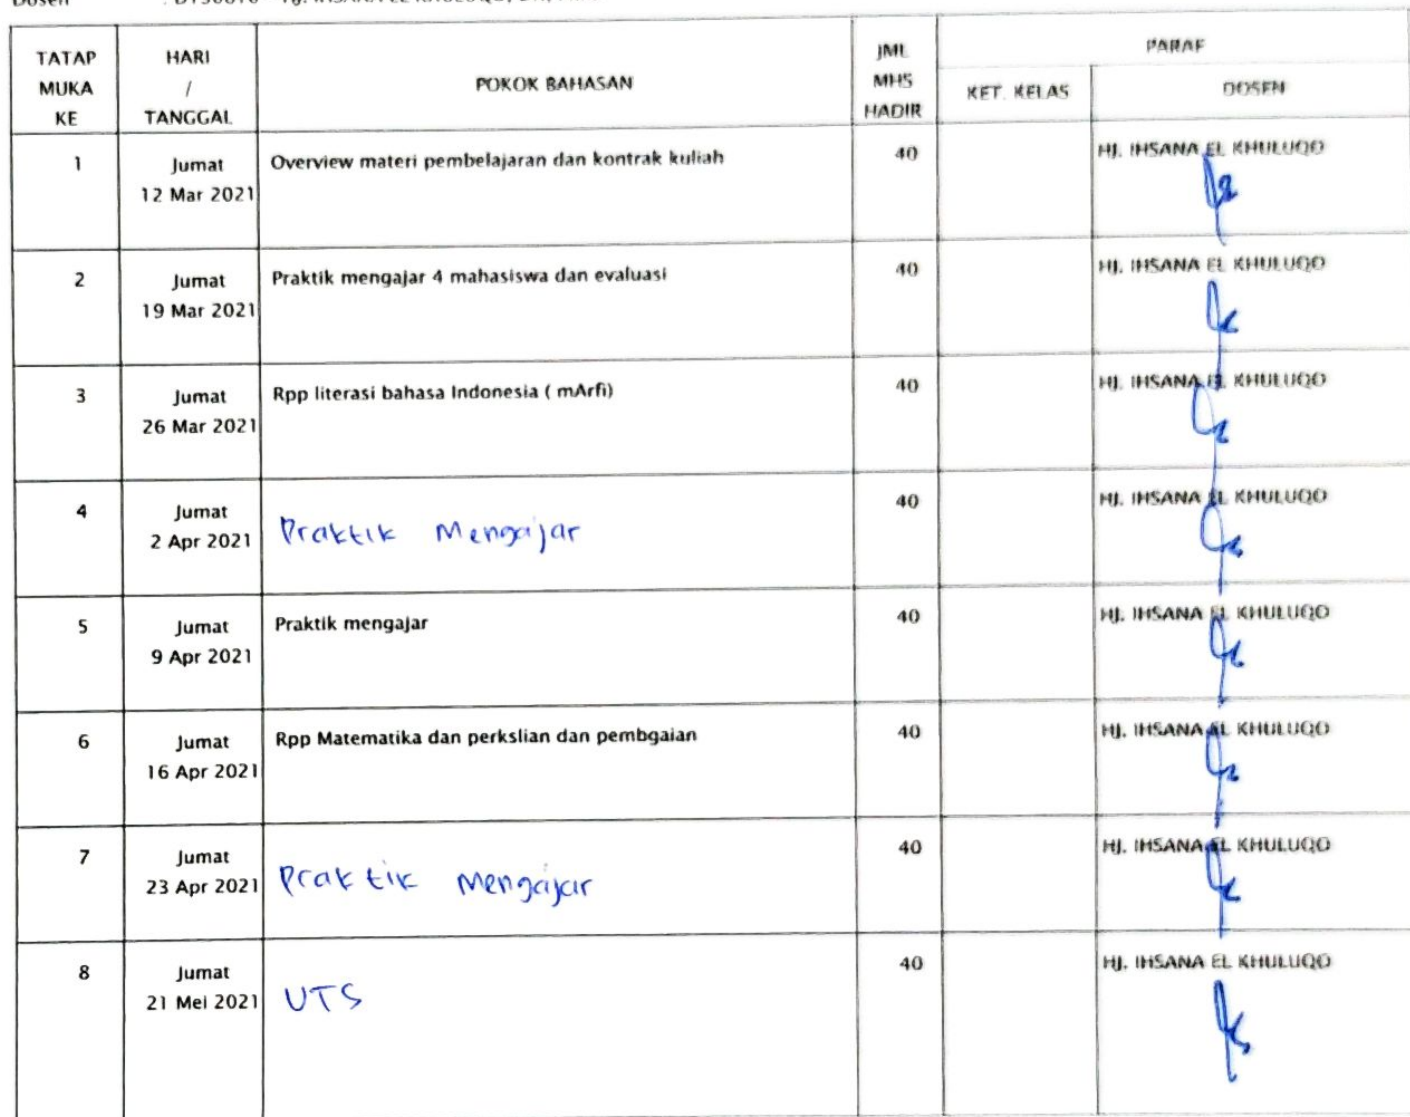 Dosen
TATAP MUKA KE
HARI / TANGGAL
POKOK BAHASAN
JML MHS HADIR
PARAF
KET. KELAS
DOSEN
1
Jumat
12 Mar 2021
Overview materi pembelajaran dan kontrak kuliah
40
HJ. IHSANA EL KHULUQO
2
Jumat
19 Mar 2021
Praktik mengajar 4 mahasiswa dan evaluasi
40
HJ. IHSANA EL KHULUQO
3
Jumat
26 Mar 2021
Rpp literasi bahasa Indonesia ( mArfi)
40
HJ. IHSANA EL KHULUQO
4
Jumat
2 Apr 2021
Praktik Mengajar
40
HJ. IHSANA EL KHULUQO
5
Jumat
9 Apr 2021
Praktik mengajar
40
HJ. IHSANA EL KHULUQO
6
Jumat
16 Apr 2021
Rpp Matematika dan perkslian dan pembgaian
40
HJ. IHSANA EL KHULUQO
7
Jumat
23 Apr 2021
Praktik Mengajar
40
HJ. IHSANA EL KHULUQO
8
Jumat
21 Mei 2021
UTS
40
HJ. IHSANA EL KHULUQO